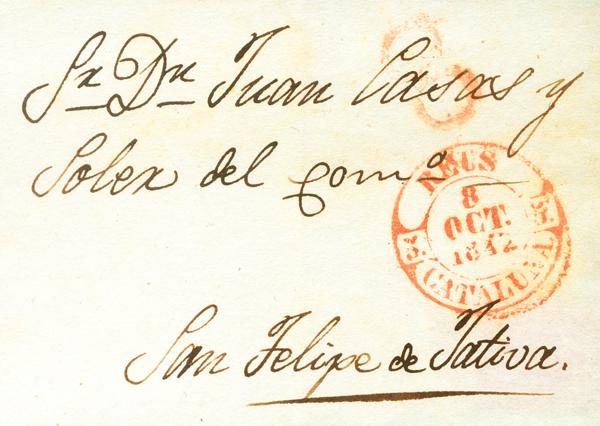 Sr. Dn. Juan Casas y
Soler del com.o
San Felipe de Jativa.
REUS
8
OCT.
1842
CATALUÑA